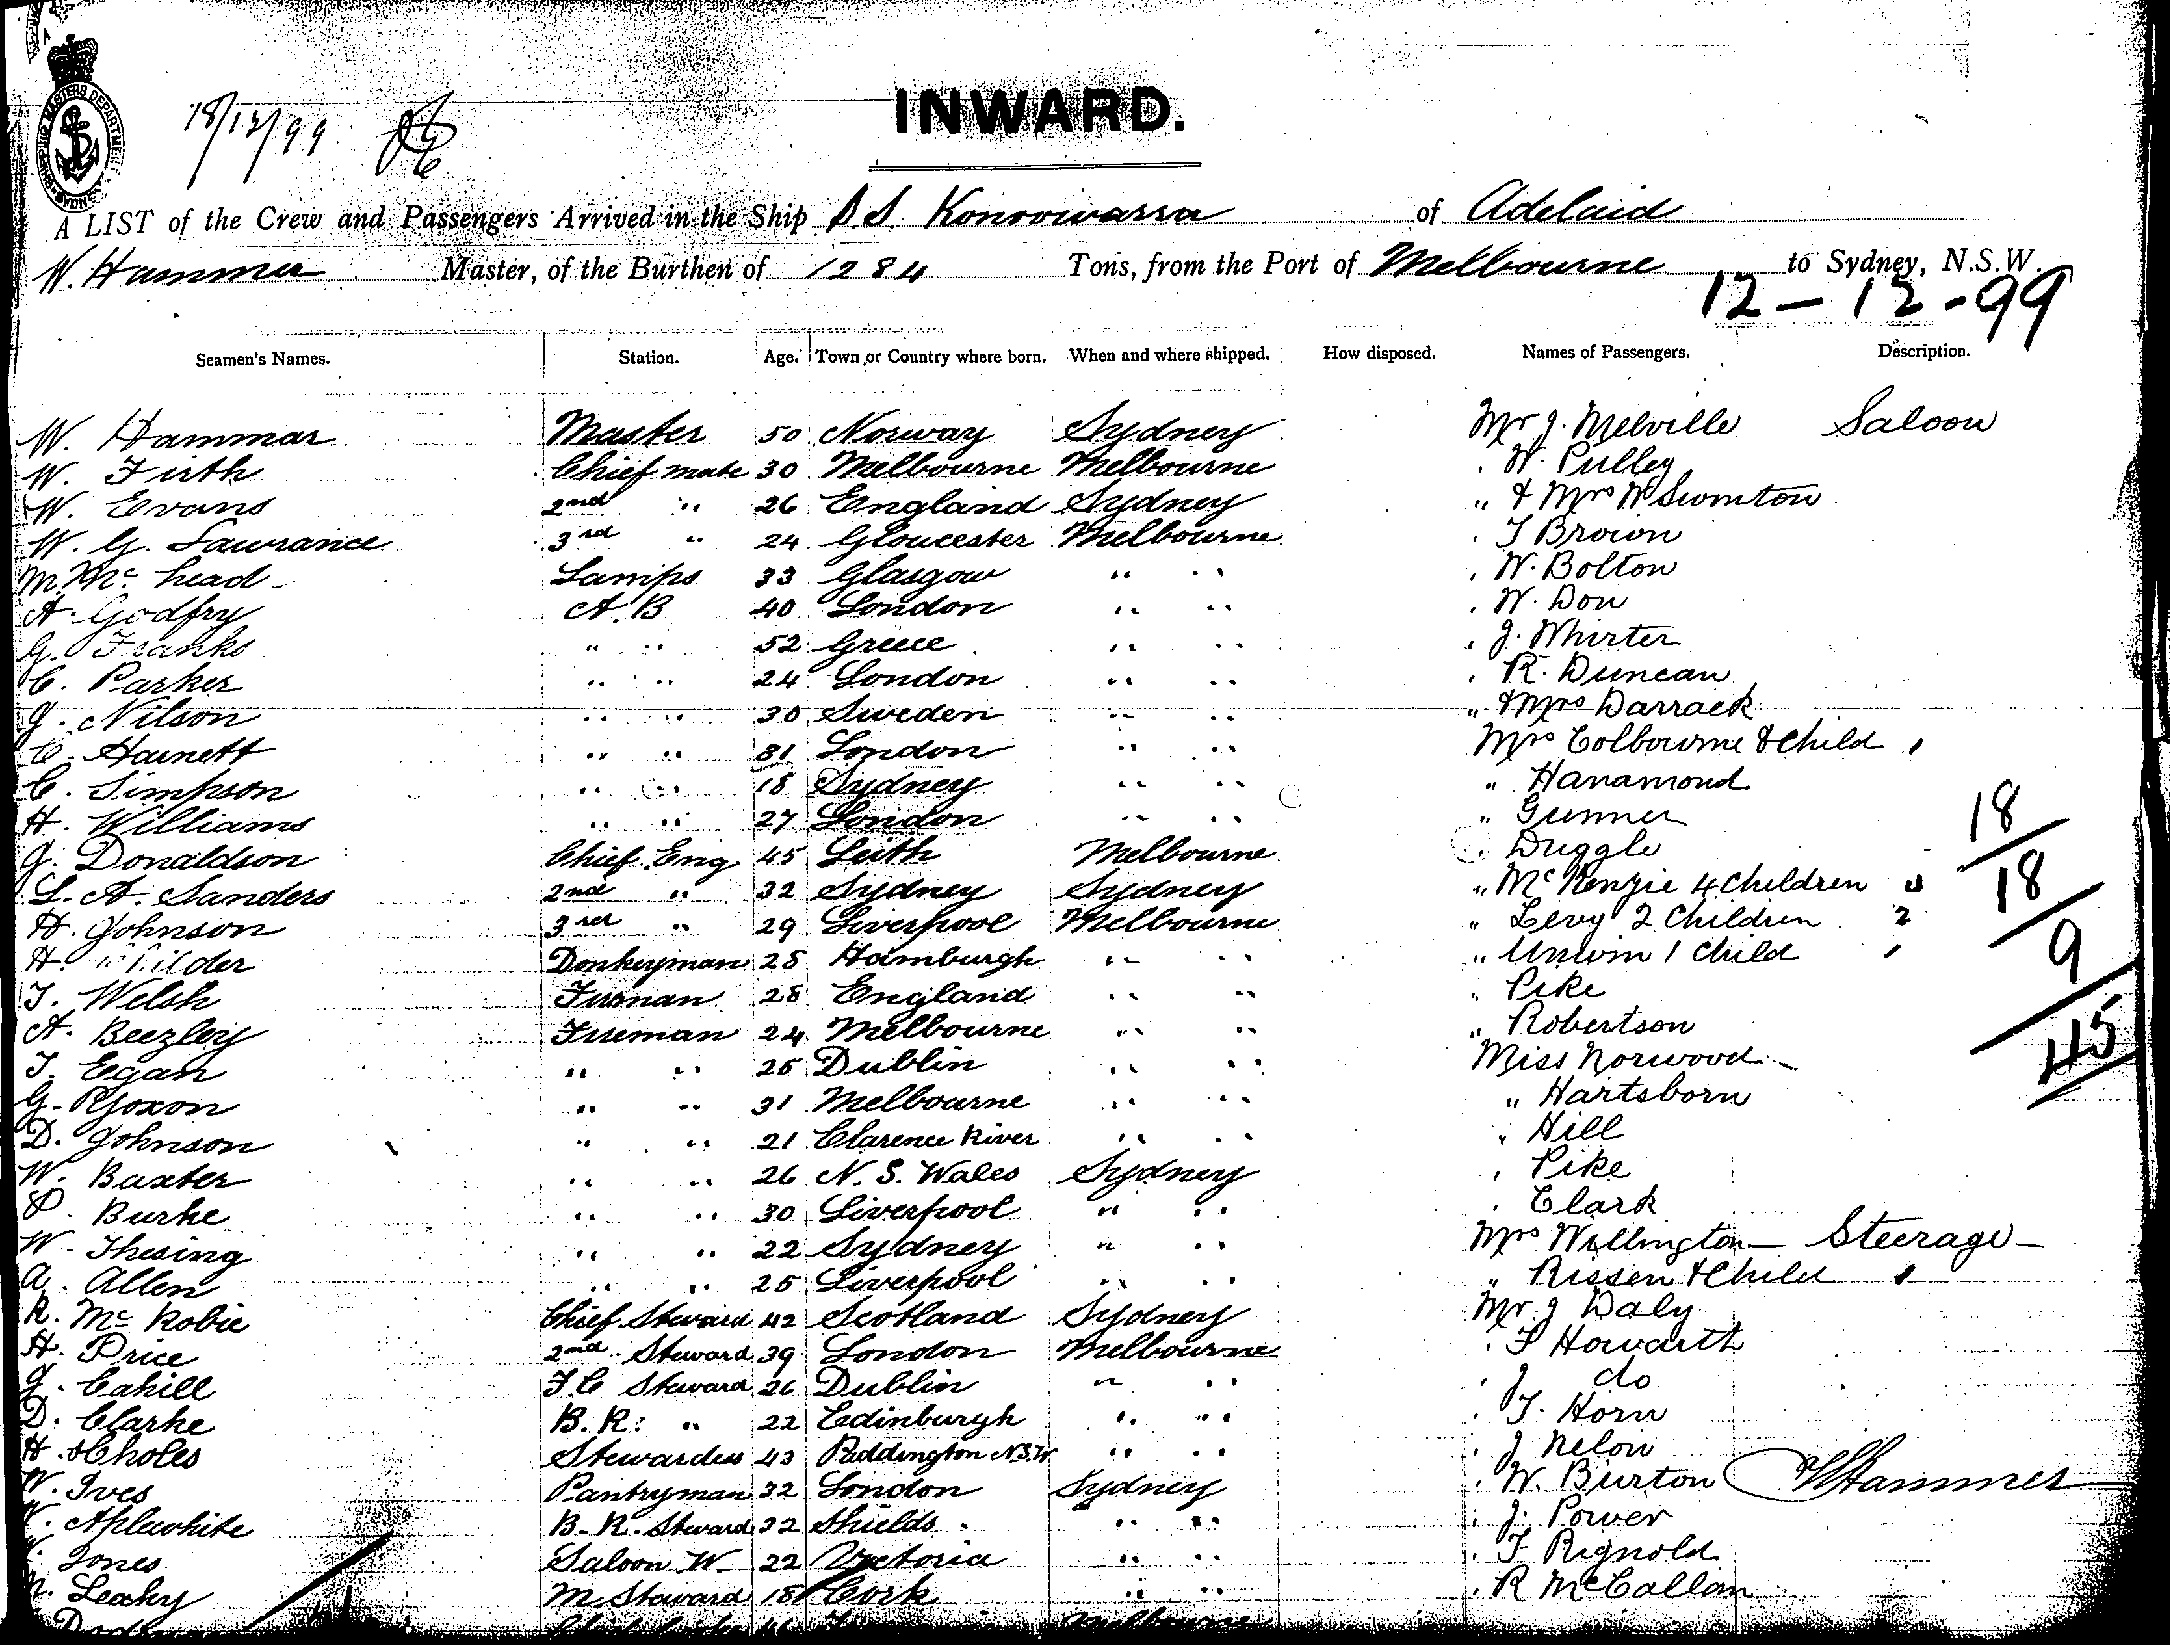 18/12/99
INWARD.
A LIST of the Crew and Passengers Arrived in the Ship S.S. Konoowarra of Adelaid
W. Hammer Master, of the Burthen of 1284 Tons, from the Port of Melbourne to Sydney, N.S.W.
12-12-99
Seamen's Names. Station. Age. Town or Country where born. When and where shipped. How disposed. Names of Passengers. Description.
W. Hammar Master 50 Norway Sydney Mr J. Melville Saloon
W. Firth Chief mate 30 Melbourne Melbourne " W. Pulley
W. Evans 2nd " 26 England Sydney " & Mrs McSwinton
W. G. Lawrance 3rd " 24 Gloucester Melbourne " T Brown
M. Mc head Lamps 33 Glasgow " " " W. Bolton
A. Godfry A.B 40 London " " " W. Don
G. Franks " " 52 Greece " " " J. Whirter
C. Parker " " 24 London " " " R. Duncan
J. Nilson " " 30 Sweden " " " & Mrs Darrack
C. Harnett " " 31 London " " Mrs Colbourne & Child 1
C. Simpson " " 18 Sydney " " " Hanamond
H. Williams " " 27 London " " " Gunner
J. Donaldson Chief Eng 45 Leith Melbourne " Duggle
L. A. Sanders 2nd " 32 Sydney Sydney " McKenzie 4 Children 4
H. Johnson 3rd " 29 Liverpool Melbourne " Levy 2 Children 2
H. Donkeyman 25 Hamburgh " " " Unwin 1 Child 1
T. Welsh Fireman 28 England " " " Pike
A. Beezley Fireman 24 Melbourne " " " Robertson
T. Egan " " 25 Dublin " " Miss Norwood
G. " " 31 Melbourne " " " Hartsborn
D. Johnson " " 21 Clarence River " " " Hill
W. Baxter " " 26 N. S. Wales Sydney " Pike
P. Burke " " 30 Liverpool " " " Clark
W. Thesing " " 22 Sydney " " Mrs Wellington — Steerage —
A. Allen " " 25 Liverpool " " " Rissen & Child 1
R. Mc Robie Chief Steward 42 Scotland Sydney Mr J Daly
H. Price 2nd Steward 39 London Melbourne " F Howarth
J. Cahill F.C Steward 26 Dublin " " " J do
D. Clarke B.R: " 22 Edinburgh " " " T. Horn
H. Scholes Stewardess 43 Paddington N.S.W " " " J Nelon
W. Ives Pantryman 32 London Sydney " W. Burton
Aplewhite B.R. Steward 32 Shields " " " J. Power
Jones Saloon W 22 Victoria " " " F Rignold
Leahy M. Steward 18 Cork " " " R McCallom
Melbourne
18
18
9
45
W Hammer